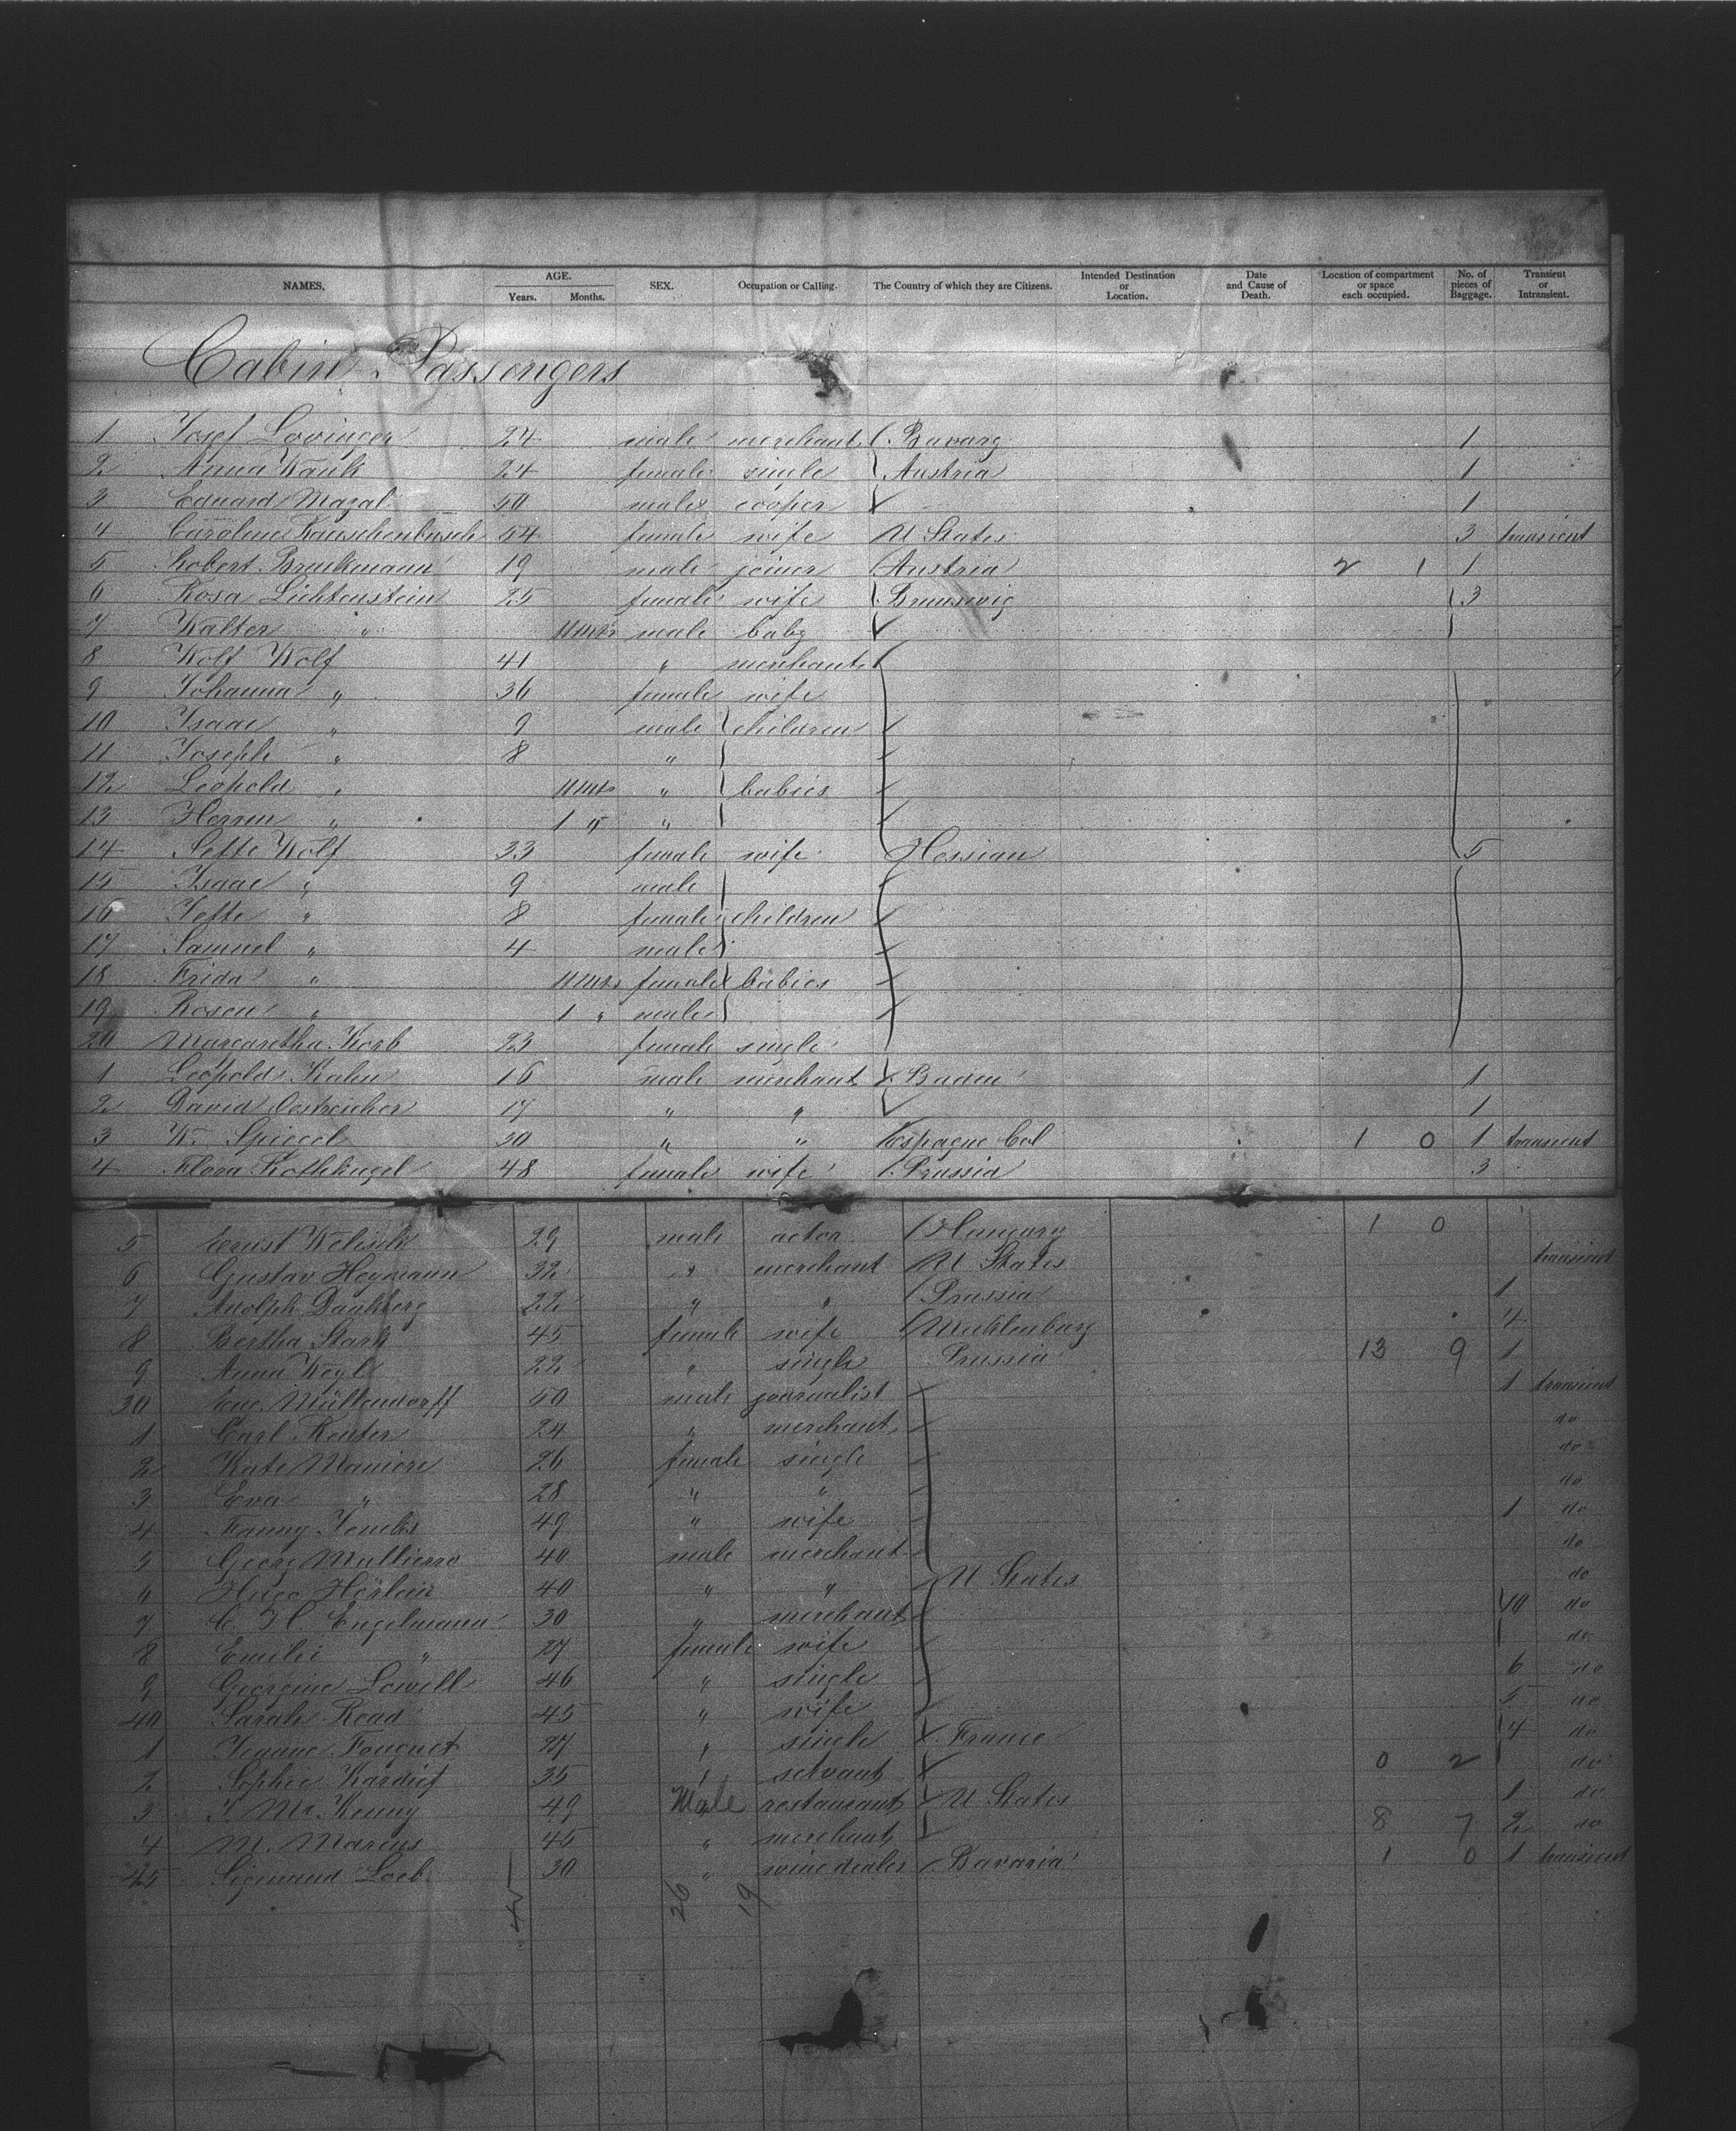 NAMES. AGE. Years. Months. SEX. Occupation or Calling. The Country of which they are Citizens. Intended Destination or Location. Date and Cause of Death. Location of compartment or space each occupied. No. of pieces of Baggage. Transient or Intransient.
Cabin Passengers
1 Josef Lovinger 24 male merchant Bavarg 1
2 Anna 24 female single Austria 1
3 Eduard Mazal 50 male cooper 1
4 Caroline Rauschenbusch 54 female wife U States 3 transient
5 Robert Brinkmann 19 male joiner Austria 2 1 1
6 Rosa Lichtenstein 25 female wife Brunswig 3
7 Walter " 11 mts male baby
8 Wolf Wolf 41 " merchant
9 Johanna " 36 female wife
10 Isaac " 9 male children
11 Joseph " 8 "
12 Leopold " 11 mts " babies
13 Herren " 1 " "
14 Jette Wolf 33 female wife Hessian 5
15 Isaac " 9 male
16 Jette " 8 female children
17 Samuel " 4 male
18 Frida " 11 mts female babies
19 Rosen " 1 " male
20 Margaretha Korb 23 female single
1 Leopold Kahn 16 male merchant Baden 1
2 David Oestreicher 17 " " 1
3 W. Spiegel 30 " " Espagne Col 1 0 1 transient
4 Flora Rothkugel 48 female wife Prussia 3
5 Ernst 29 male actor Hungary 1 0
6 Gustav Heymann 32 " merchant U States transient
7 Adolph Dankberg 22 " " Prussia 1
8 Bertha Stark 45 female wife Mecklenburg 4
9 Anna Weyl 22 " single Prussia 13 9 1
30 Eug. Müllendorff 50 male journalist 1 transient
1 Carl Reuter 24 " merchant do
2 Kate Maniere 26 female single do
3 Eva " 28 " " do
4 Fanny 49 " wife 1 do
5 Georg 40 male merchant do
6 Hugo Hörlein 40 " " U States do
7 C. H. Engelmann 30 " merchant 10 do
8 Emilie " 27 female wife do
9 Georgine Lowell 46 " single 6 do
40 Sarah Road 45 " wife 5 do
1 Jeanne Fouquet 27 " single France 4 do
2 Sophie 35 " servant 0 2 do
3 J. Mc Kenny 49 Male restaurant U States 1 do
4 M. Marcus 45 " merchant 8 7 2 do
45 Sigmund Loeb 30 " wine dealer Bavaria 1 0 1 transient
45 26 19